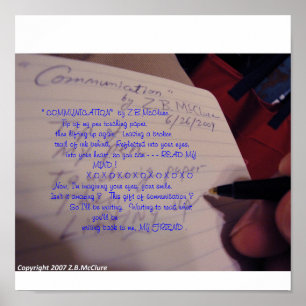 "Communication"
by Z.B. McClure
6/26/2007
"COMMUNICATION" by Z.B.McClure
Tip of my pen touching paper,
then lifting up again. Leaving a broken
trail of ink behind. Reflected into your eyes.
Into your heart, so you can - - - READ MY
MIND !
X O X O X O X O X O X O X O
Now, I'm imagining your eyes, your smile.
Isn't it amazing ? This gift of communication ?
So I'll be waiting. Waiting to read what
you'll be
writing back to me, MY FRIEND
Copyright 2007 Z.B.McClure